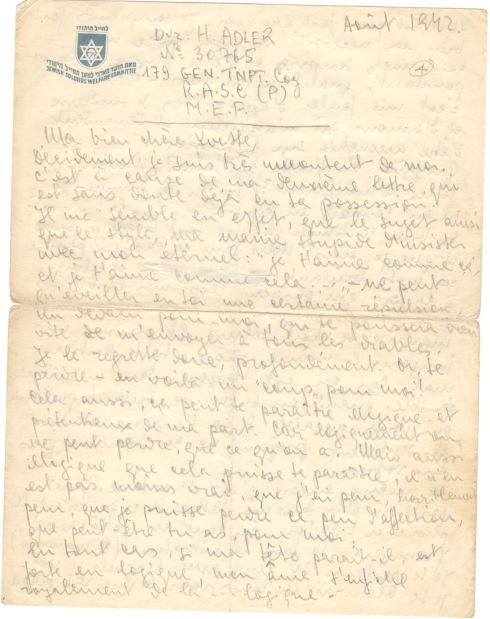 לחייל היהודי
מאת הועד הארצי למען החייל היהודי
JEWISH SOLDIERS WELFARE COMMITTEE
Août 1942.
Dvr. H. ADLER
No 30765
179 GEN. TNPT. Coy
R.A.S.C (P)
M.E.F.
4
Ma bien chère Yvette,
Décidement, je suis très mécontent de moi.
C'est à cause de ma deuxième lettre, qui
est sans doute déjà en ta possession!
Il me semble en effet, que le sujet ainsi
que le style, une manie stupide d'insister
avec mon éternel: "je t'aime comme ci
et je t'aime comme cela...." ne peut
qu'éveiller en toi une certaine répulsion
un dédain pour moi, qui te poussera bien
vite de m'envoyer à tous les diables.
Je le regrette donc, profondément. Or, te
perdre - en voilà un "coup" pour moi!
Cela aussi, ça peut te paraître illogique et
prétentieux de ma part. Car logiquement on
ne peut perdre, que ce qu'on a. Mais aussi
illogique que cela puisse te paraître, il n'en
est pas moins vrai, que j'ai peur, horriblement
peur que je puisse perdre ce peu d'affection,
que peut-être tu as, pour moi.
En tout cas, si ma tête paraît-il, est
forte en logique, mon âme s'enfiche
royalement de la logique -